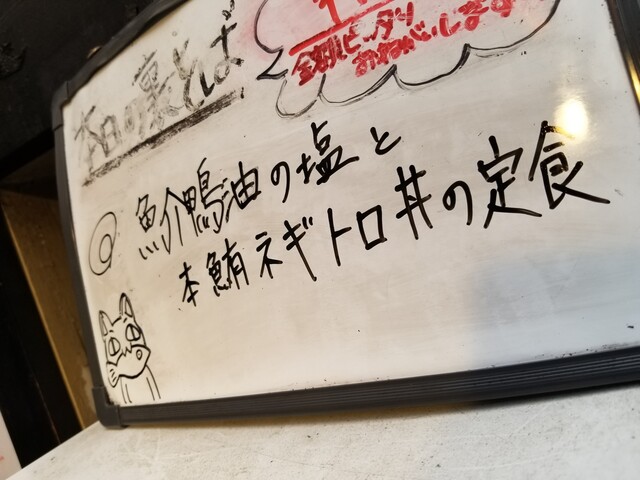 本日の裏そば
金額ピッタリ
おねがいします
◎ 魚介鴨油の塩と
本鮪ネギトロ丼の定食